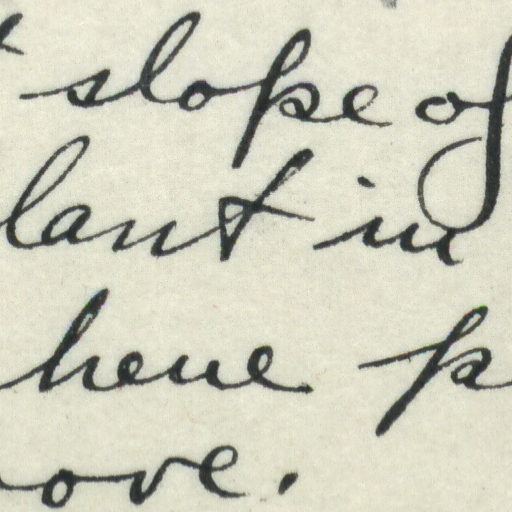 slope of
lant in
here p
ove.